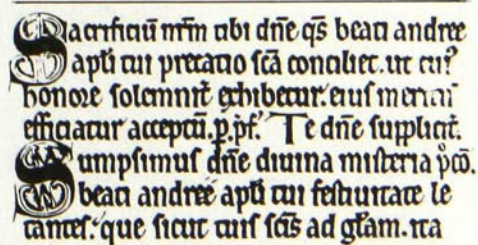 Sacrificiū nr̄m tibi dn̄e qs̄ beati andree
apl̄i tui precatio sc̄a conciliet. ut cui᷒
honore solemnit̄ exhibetur. eius meritis
efficiatur acceptū. p. pf. Te dn̄e supplicit̄.
Sumpsimus dn̄e diuina misteria p̊cō.
beati andree apl̄i tui festiuitate le
tantes. que sicut tuis sc̄is ad gl̄am. ita